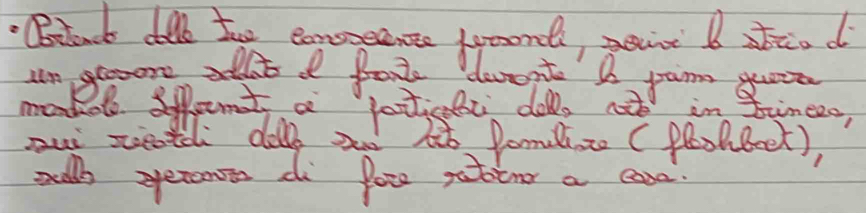 • Partendo dalle tue conoscenze personali, scrivi la storia di
un giovane soldato al fronte durante la prima guerra
mondiale. Soffermati ai particolari della vita in trincea,
sui ricordi della sua vita familiare (flashback),
sulla speranza di fare ritorno a casa.